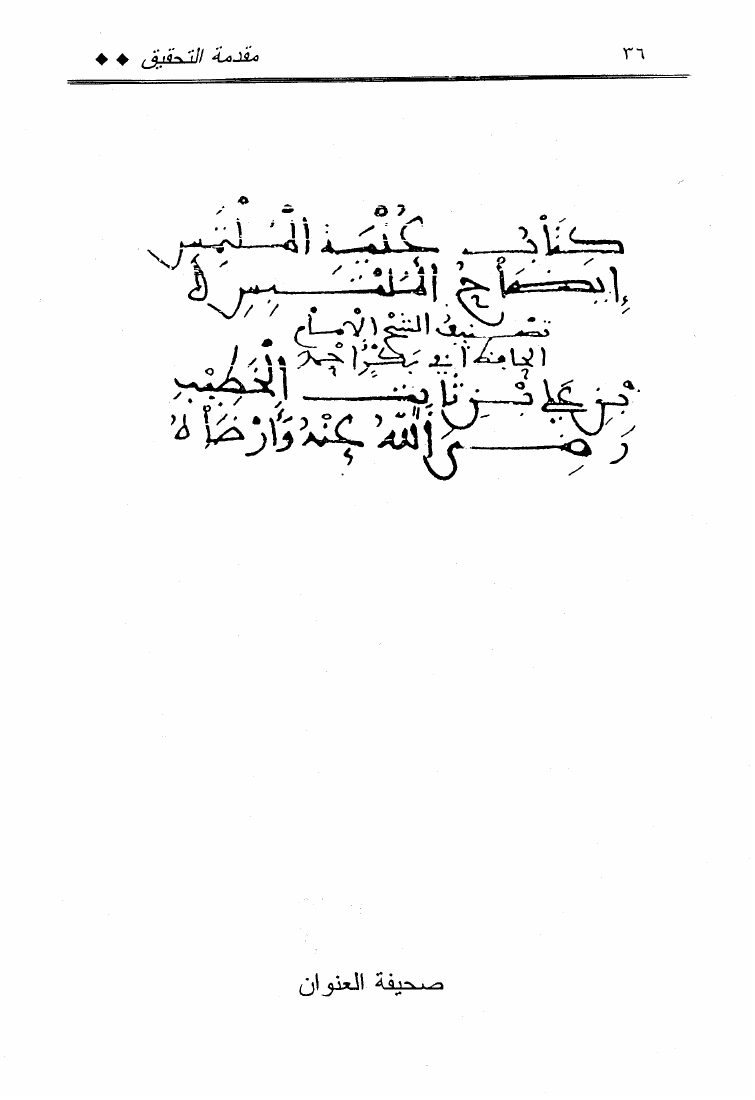 ٣٦ مقدمة التحقيق
كتاب غُنْيَة المُلْتَمِس
إيضاح المُلْتَبِس
تصنيف الشيخ الإمام
الحافظ أبو بكر أحمد
بن علي بن ثابت الخطيب
رضي الله عنه وأرضاه
صحيفة العنوان